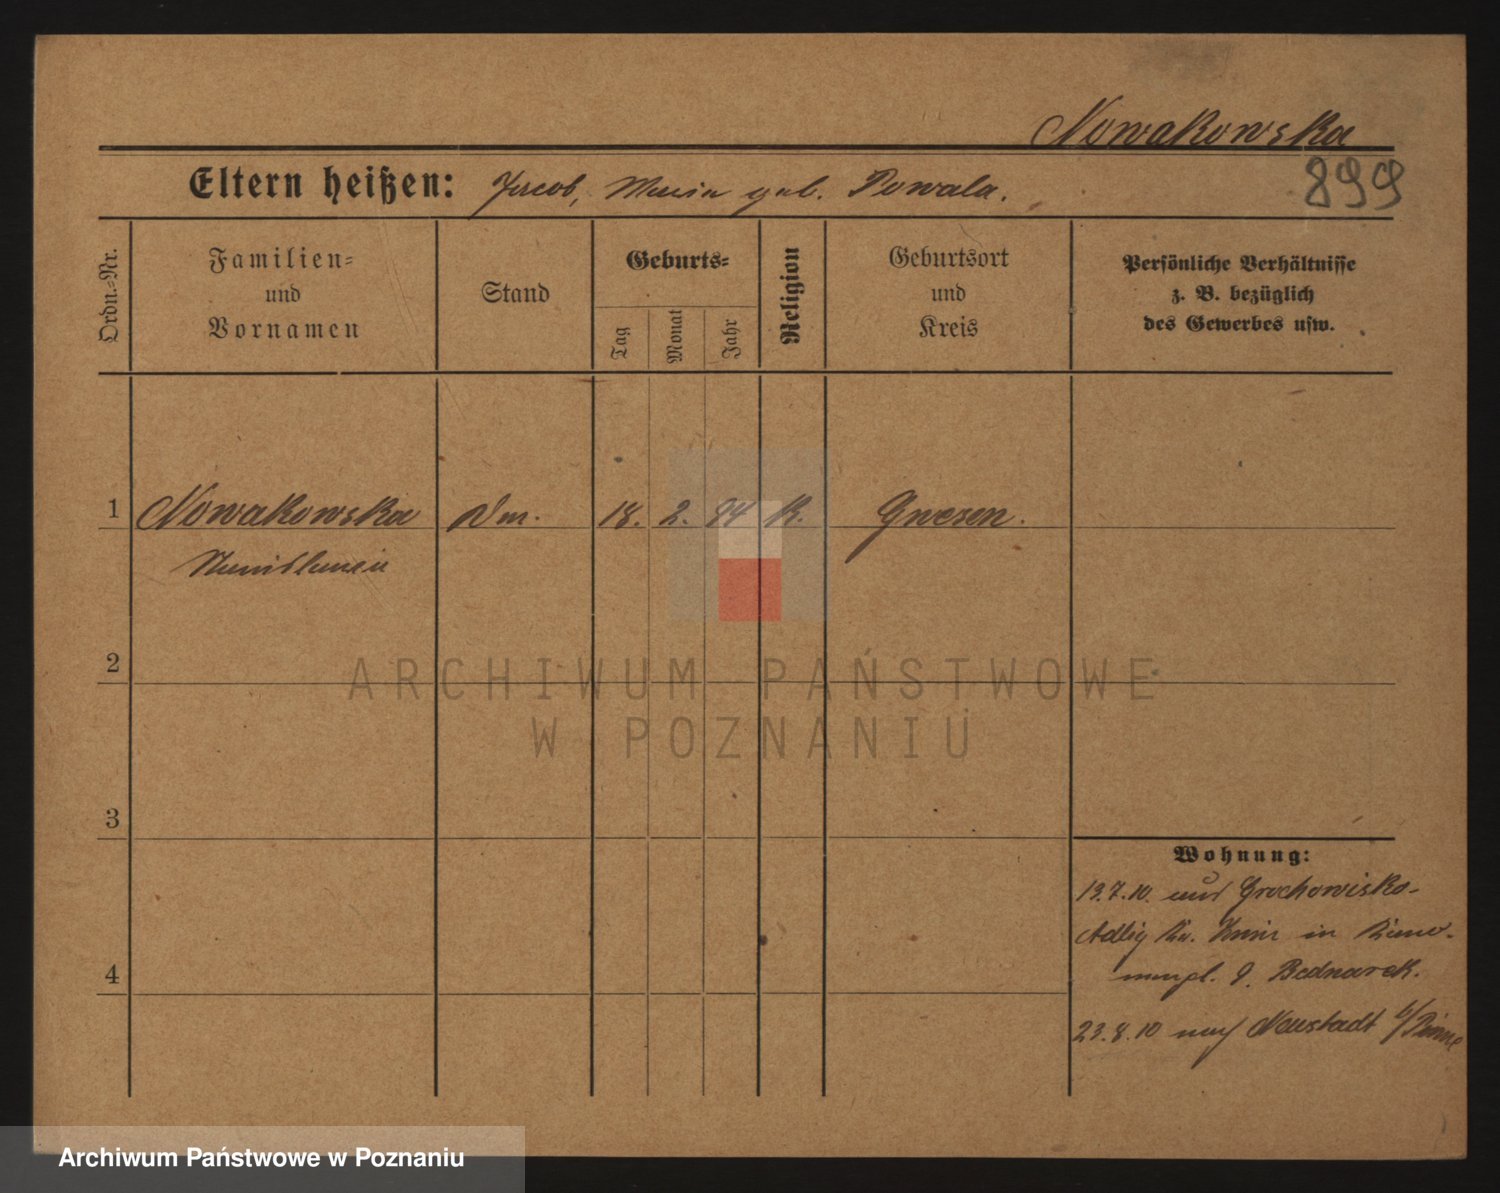 Nowakowska
Eltern heißen: Jacob, Maria geb. Powala.
899
Ordn.=Nr.
Familien=
und
Vornamen
Stand
Geburts=
Tag
Monat
Jahr
Religion
Geburtsort
und
Kreis
Persönliche Verhältnisse
z. B. bezüglich
des Gewerbes usw.
1 Nowakowska 18. 2. 94 K. Gnesen.
2
3
4
Wohnung:
19.7.10. Grochowisko-
Adlig Kr. Znin in
J. Bednarek.
23.8.10 nach Neustadt b/Pinne
ARCHIWUM PAŃSTWOWE
W POZNANIU
Archiwum Państwowe w Poznaniu